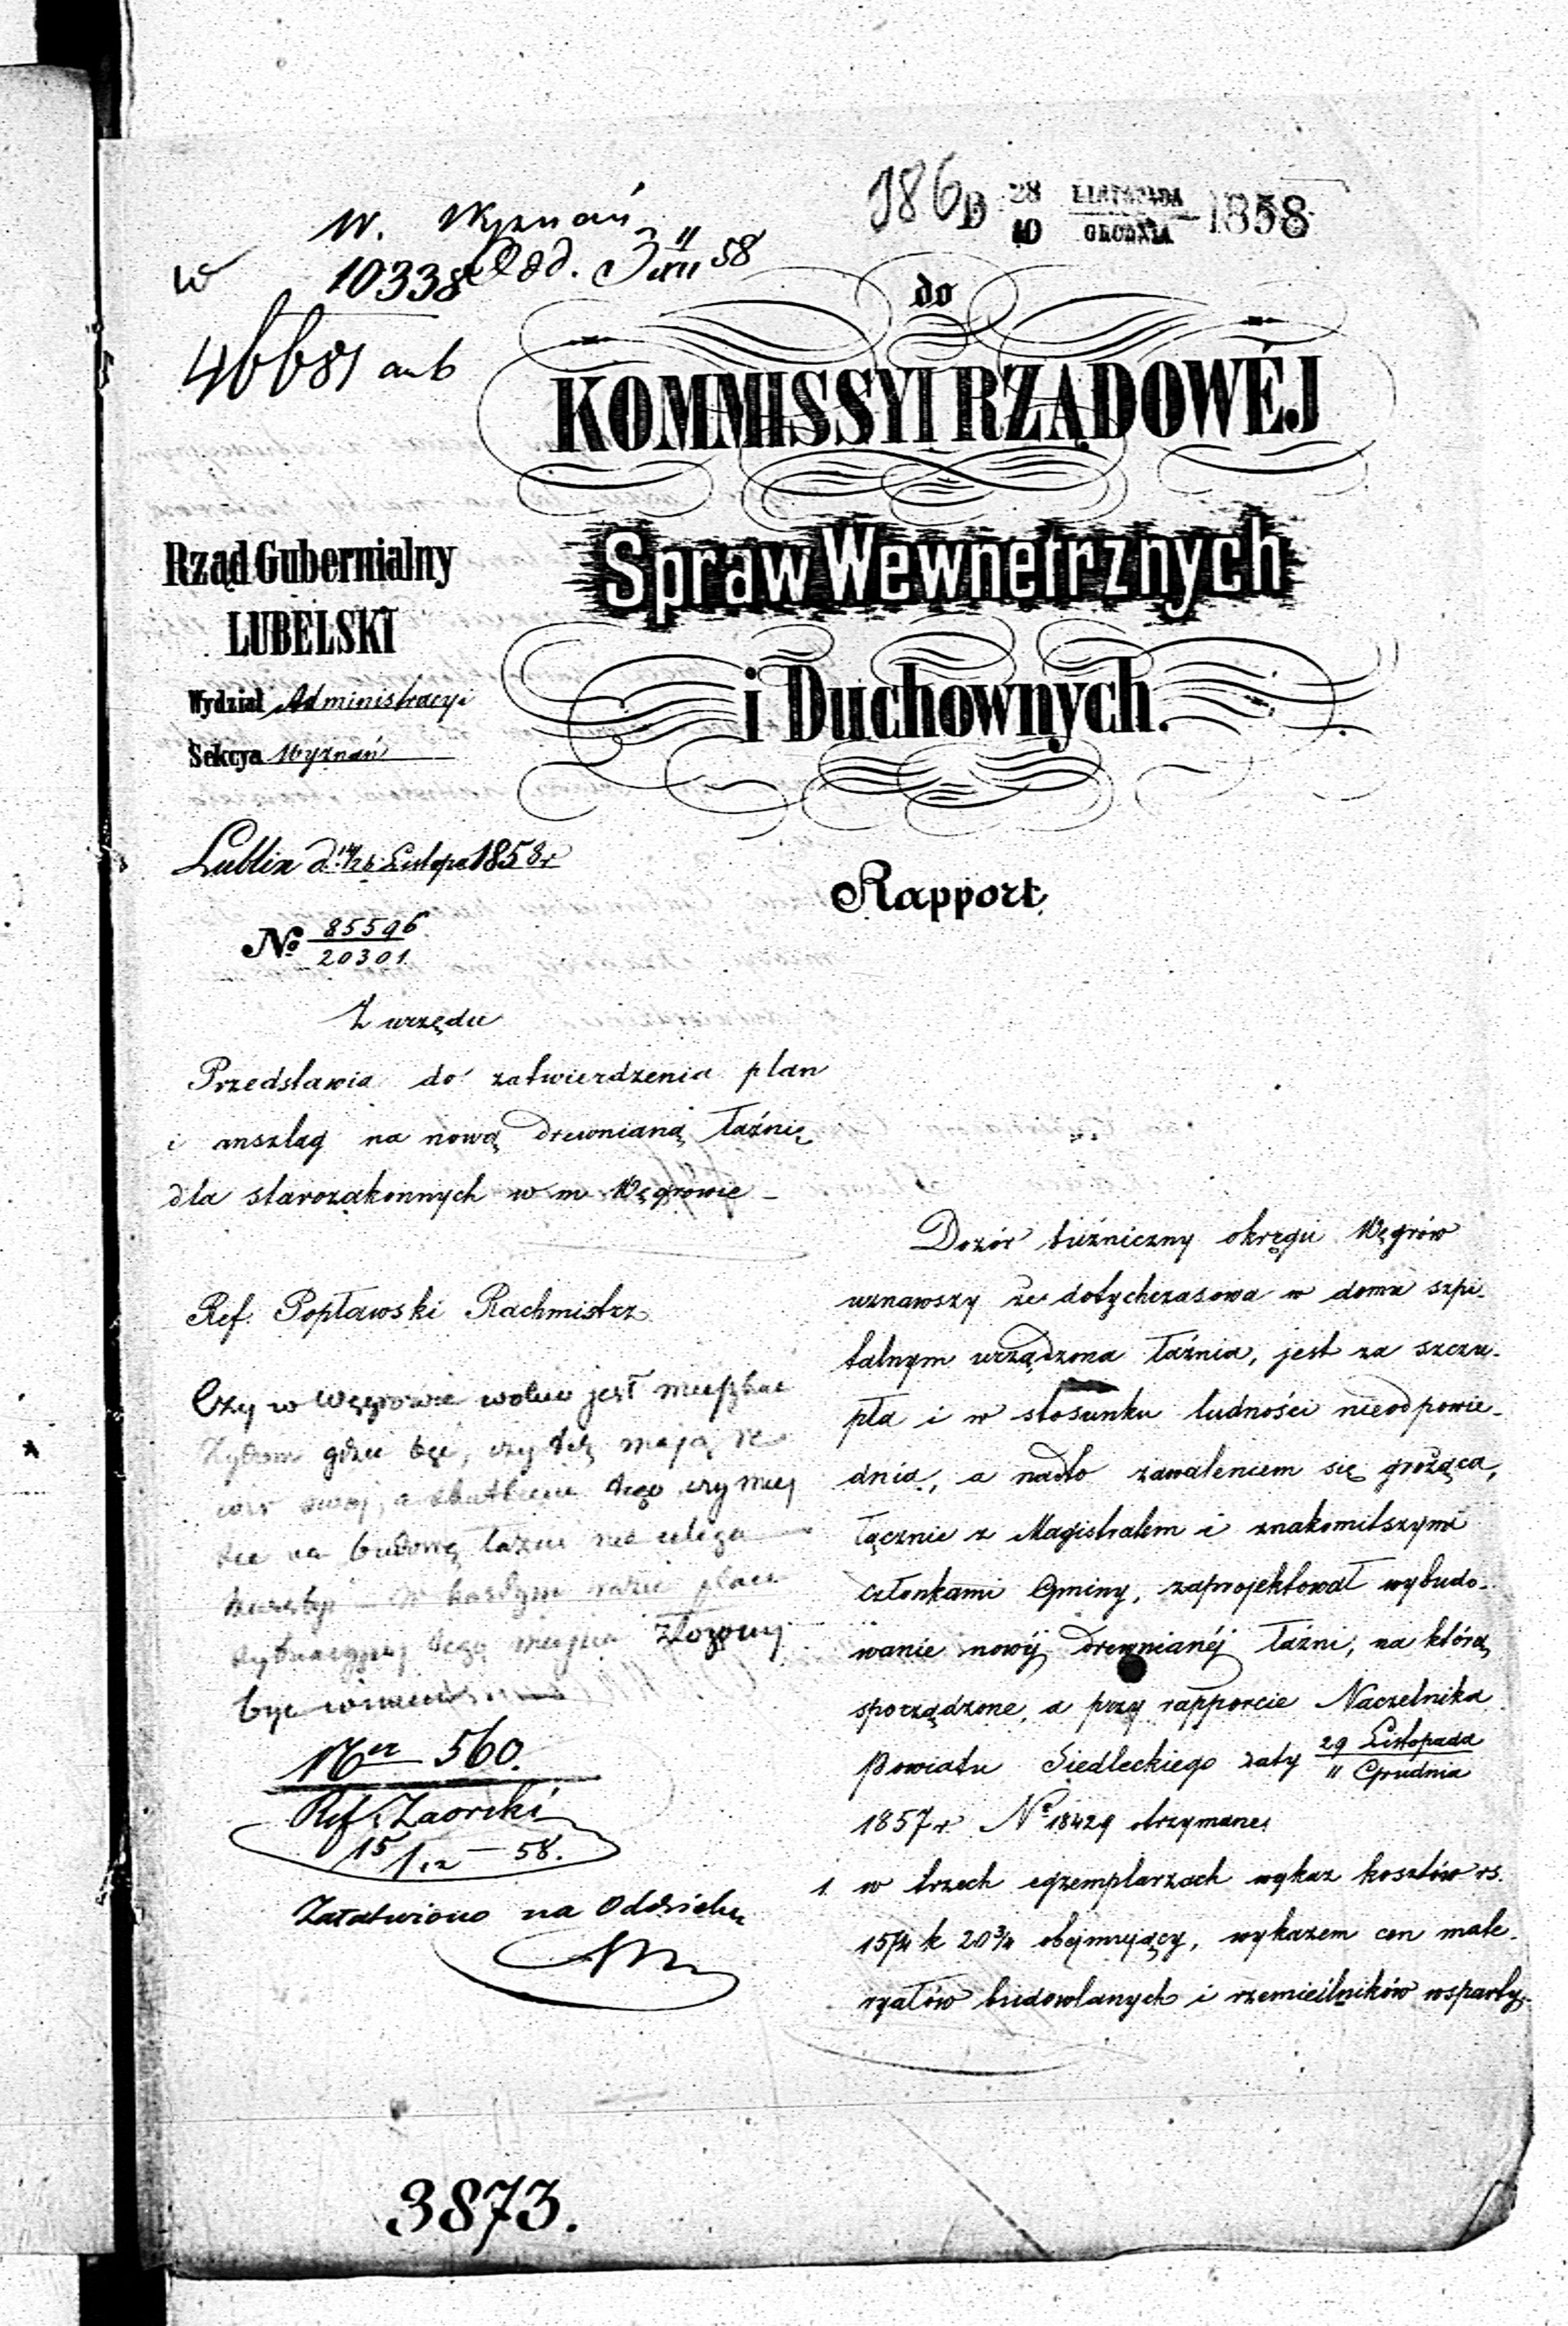 186
D 28 LISTOPADA 1858
10 GRUDNIA
W. Wyznań
w 10338
46681
do
KOMMISSYI RZĄDOWÉJ
Spraw Wewnetrznych
i Duchownych.
Rząd Gubernialny
LUBELSKI
Wydział Administracyi
Sekcya Wyznań
Lublin d. 14/26 Listopa 1858 r
Rapport
No 85596
20301
Z urzędu
Przedstawia do zatwierdzenia plan
i anszlag na nową drewnianą łaźnię
dla starozakonnych w m Węgrowie
Ref. Popławski Rachmistrz
Czy w Węgrowie wolno jest mieszkać
Żydom gdzie czy też mają re
swój, a skutkiem tego czy miej
sce na budowę łaźni nie ulega
W każdym razie plan
sytuacyjny tego miejsca złożony
być winien
560.
Ref. Zaorski
15/12 - 58.
Załatwiono na Oddziele
Dozór bużniczny okręgu Węgrów
uznawszy że dotychczasowa w domu szpi-
talnym urządzona łaźnia, jest za szczu-
pła i w stosunku ludności nieodpowie-
dnia, a nadto zawaleniem się grożąca,
łącznie z Magistratem i znakomitszymi
członkami Gminy, zaprojektował wybudo-
wanie nowéj drewnianéj łaźni, na którą
sporządzone, a przy rapporcie Naczelnika
Powiatu Siedleckiego daty 29 Listopada
11 Grudnia
1857 r No 18429 otrzymane
1. w trzech egzemplarzach wykaz kosztów rs.
1574 k 20¾ obejmujący, wykazem cen mate-
ryałów budowlanych i rzemieślników wsparty,
3873.